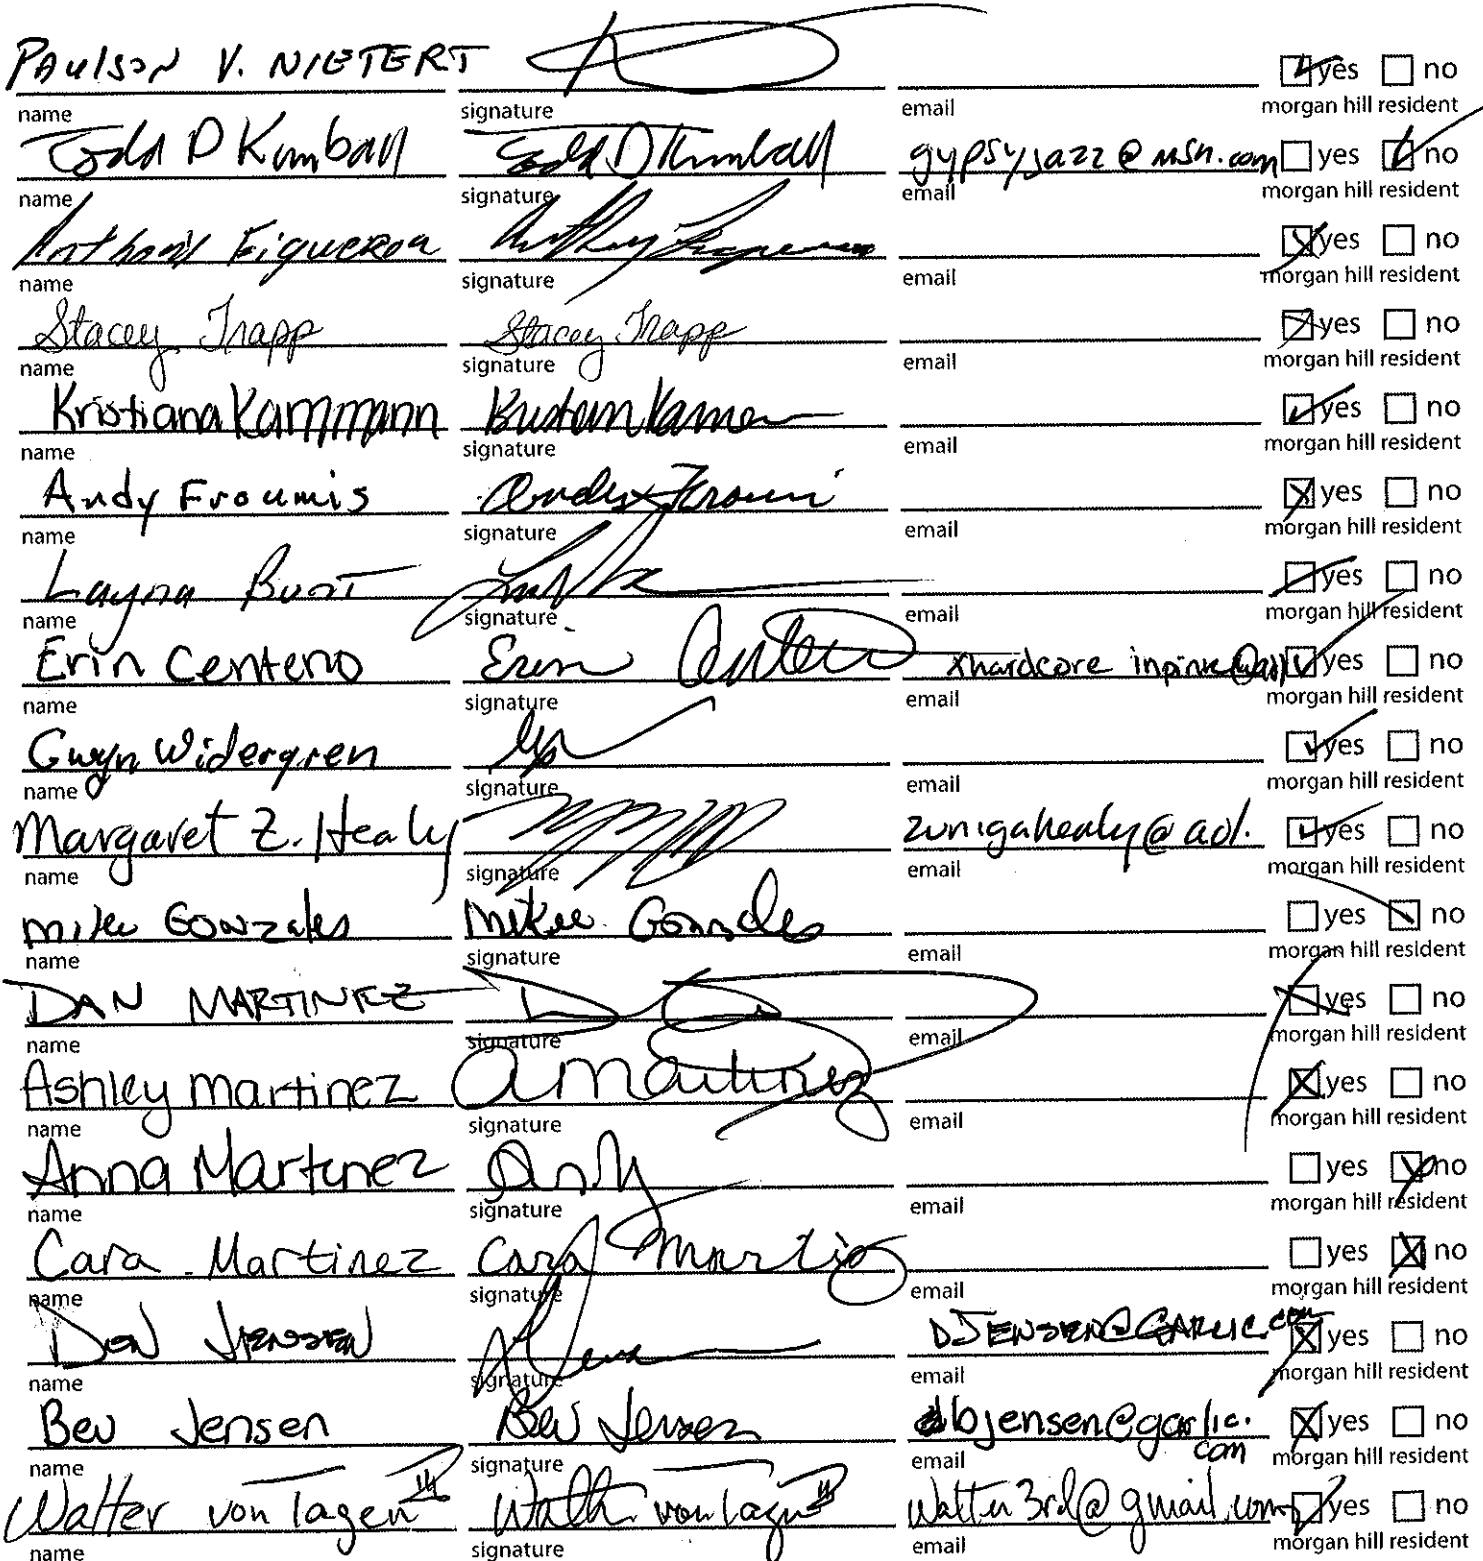 PAULSON V. NIETERT yes no
name signature email morgan hill resident
Todd D Kimball Todd D Kimball gypsyjazz@msn.com yes no
name signature email morgan hill resident
Anthony Figueroa Anthony Figueroa yes no
name signature email morgan hill resident
Stacey Trapp Stacey Trapp yes no
name signature email morgan hill resident
Kristiana Kammann yes no
name signature email morgan hill resident
Andy Froumis yes no
name signature email morgan hill resident
Layna yes no
name signature email morgan hill resident
Erin Centeno Erin Centeno xhardcore inpink@aol yes no
name signature email morgan hill resident
Gwyn Widergren yes no
name signature email morgan hill resident
Margaret Z. Healy zunigahealy@aol. yes no
name signature email morgan hill resident
mike Gonzales Mike Gonzales yes no
name signature email morgan hill resident
DAN MARTINEZ yes no
name signature email morgan hill resident
Ashley Martinez A Martinez yes no
name signature email morgan hill resident
Anna Martinez yes no
name signature email morgan hill resident
Cara Martinez Cara yes no
name signature email morgan hill resident
DON JENSEN DJENSEN@GARLIC.com yes no
name signature email morgan hill resident
Bev Jensen Bev Jensen dbjensen@garlic. yes no
name signature email com morgan hill resident
Walter von Tagen III Walter von Tagen III Walter3rd@gmail.com yes no
name signature email morgan hill resident